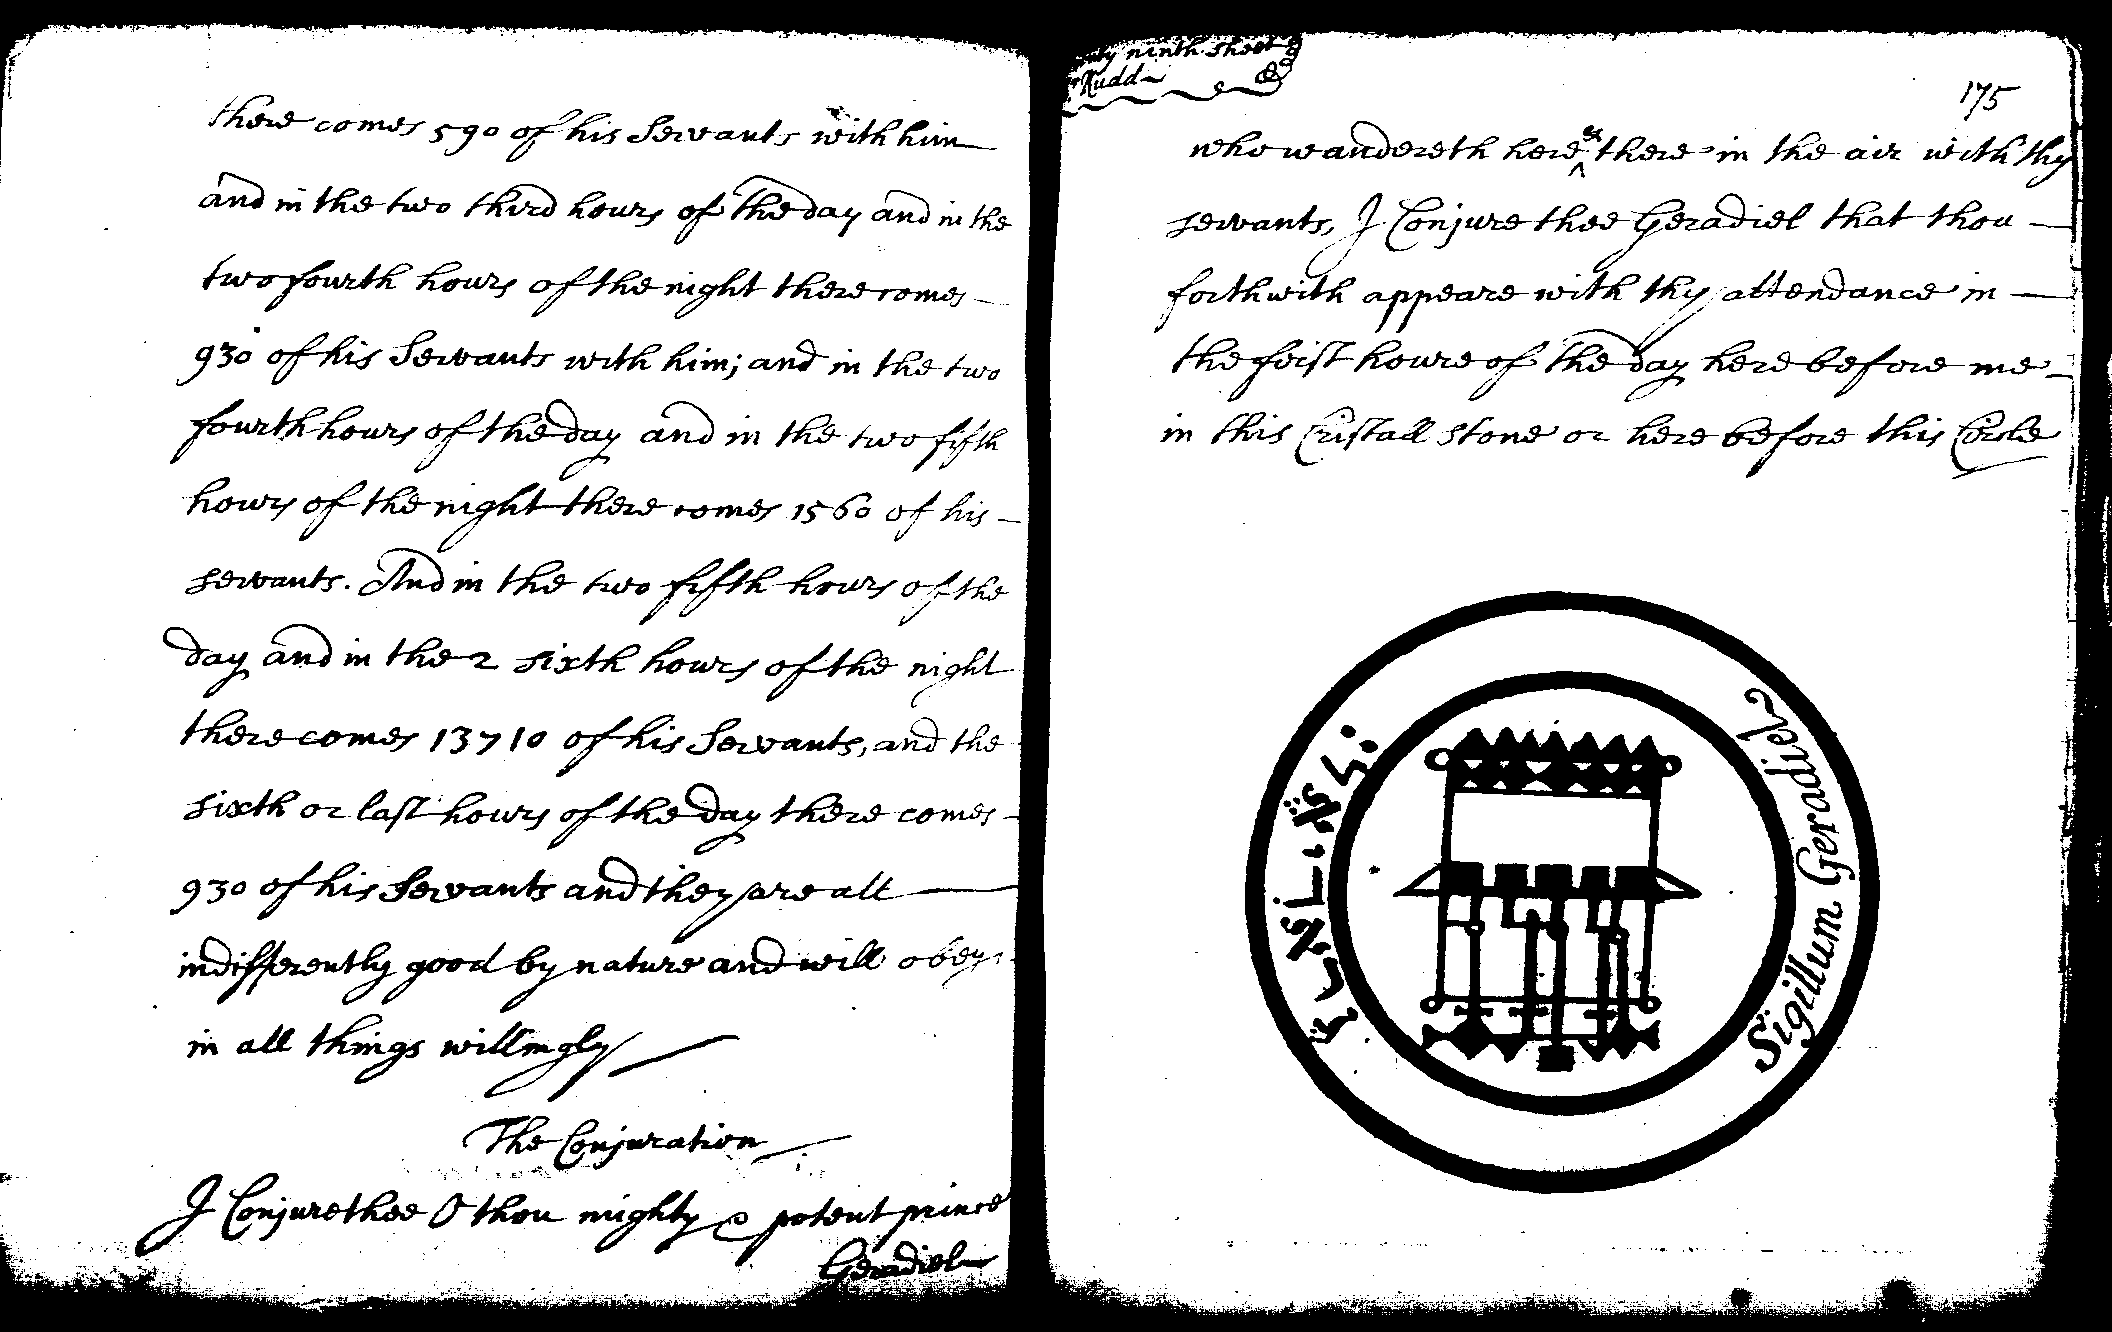 there comes 590 of his Servants with him
and in the two third hours of the day and in the
two fourth hours of the night there comes
930 of his Servants with him; and in the two
fourth hours of the day and in the two fifth
hours of the night there comes 1560 of his
servants. And in the two fifth hours of the
day and in the 2 sixth hours of the night
there comes 13710 of his Servants, and the
sixth or last hours of the day there comes
930 of his Servants and they are all
indifferently good by nature and will obey
in all things willingly
The Conjuration
I Conjure thee O thou mighty & potent prince
Geradiel
ninth sheet
Rudd
175
who wandereth here & there in the air with thy
servants, I Conjure thee Geradiel that thou
forthwith appeare with thy attendance in
the first houre of the day here before me
in this Cristall stone or here before this Circle
Sigillum Geradiel